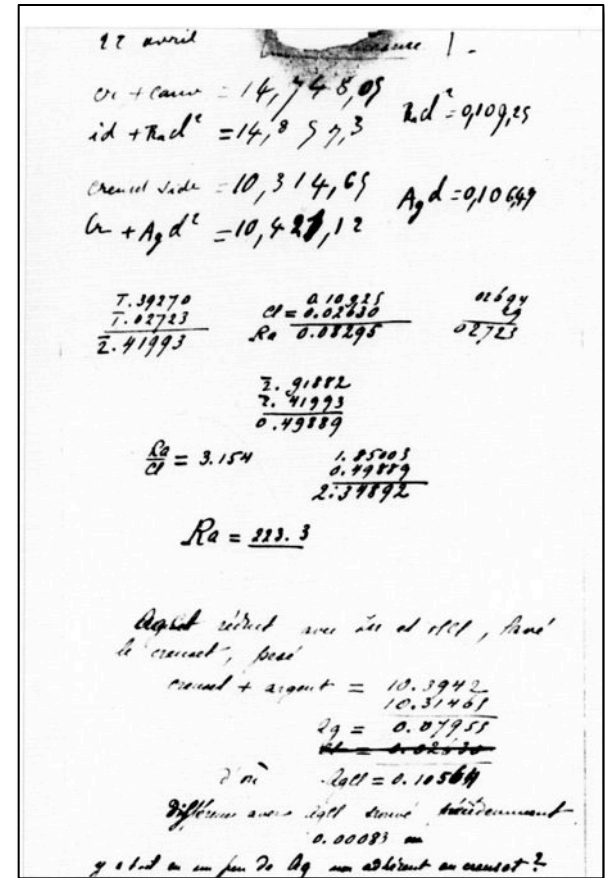 22 avril 1.
cr + canv = 14,748,05
id + RaCl² = 14,857,3 RaCl² = 0,109,25
creuset vide = 10,314,65
Cr + AgCl² = 10,421,12 AgCl = 0,10647
1.39270 0.10925 02694
1.02723 Cl = 0.02630 29
2.41993 Ra 0.08295 02723
2.91882
2.41993
0.49889
Ra/Cl = 3.154 1.85003
0.49889
2.34892
Ra = 223.3
AgCl réduit avec Zn et HCl, lavé
le creuset, pesé
creuset + argent = 10.3942
10.31465
Ag = 0.07955
d'où AgCl = 0.10564
différence avec AgCl trouvé précédemment
0.00083
y a-t-il eu un peu de Ag non adhérent au creuset ?